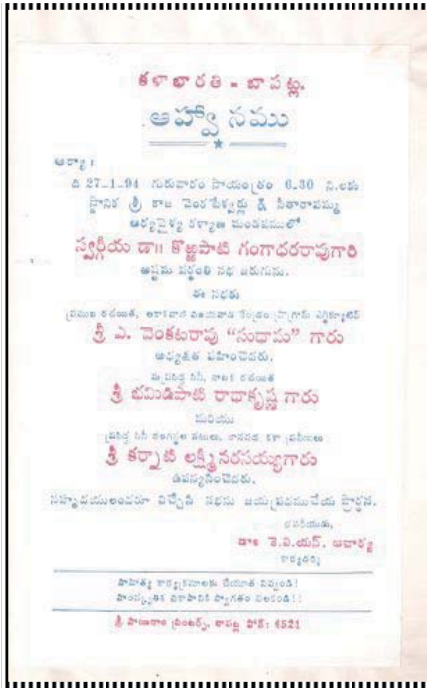 కళాభారతి - బాపట్ల.
ఆహ్వానము
ఆర్యా !
ది 27-1-94 గురువారం సాయంత్రం 6.30 ని.లకు
స్థానిక శ్రీ కాజ వెంకటేశ్వర్లు & సీతారావమ్మ
ఆర్యవైశ్య కళ్యాణ మండపములో
స్వర్గీయ డా॥ కొఱ్ఱపాటి గంగాధరరావుగారి
అష్టమ వర్ధంతి సభ జరుగును.
ఈ సభకు
ప్రముఖ రచయిత, ఆకాశవాణి విజయవాడ కేంద్రం ప్రోగ్రామ్ ఎగ్జిక్యూటివ్
శ్రీ ఎ. వెంకటరావు "సుధామ" గారు
అధ్యక్షత వహించెదరు.
సుప్రసిద్ధ సినీ, నాటక రచయిత
శ్రీ భమిడిపాటి రాధాకృష్ణ గారు
మరియు
ప్రసిద్ధ సినీ రంగస్థల నటులు, జానపద కళా ప్రవీణులు
శ్రీ కర్నాటి లక్ష్మీనరసయ్యగారు
ఉపన్యసించెదరు.
సహృదయులందరూ విచ్చేసి సభను జయప్రదముచేయ ప్రార్థన.
భవదీయుడు,
డాః కె.వి.యస్. ఆచార్య
కార్యదర్శి
సాహిత్య కార్యక్రమాలకు చేయూత నివ్వండి !
సాంస్కృతిక వికాసానికి స్వాగతం పలకండి !!
శ్రీ సాయిరాం ప్రింటర్స్, బాపట్ల ఫోన్: 4521